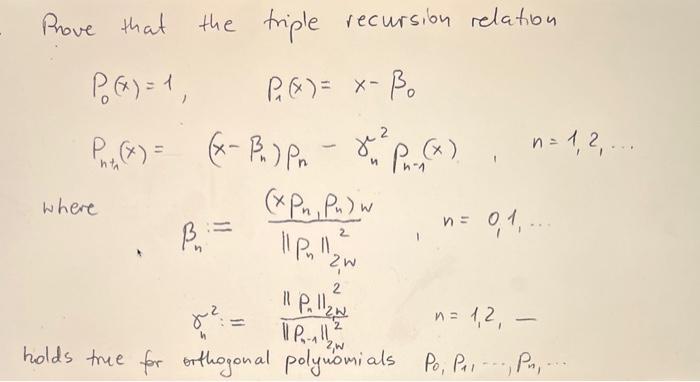 Prove that the triple recursion relation
P₀(x) = 1, P₁(x) = x - β₀
Pₙ₊₁(x) = (x - βₙ)pₙ - γₙ² pₙ₋₁(x), n = 1, 2, ...
where
βₙ := (xpₙ, pₙ)w / ||pₙ||²₂,w, n = 0, 1, ...
γₙ² := ||pₙ||²₂,w / ||pₙ₋₁||²₂,w n = 1, 2, —
holds true for orthogonal polynomials P₀, P₁, ..., Pₙ, ...